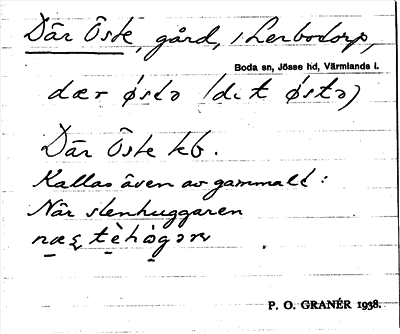 Där Öste, gård, i Lerbodorp,
Boda sn, Jösse hd, Värmlands l.
dær ǿstə (de t ǿstə)
Där Öste kb.
Kallas även av gammalt:
När stenhuggaren
næṣ tèhògər
P. O. GRANÉR 1938.